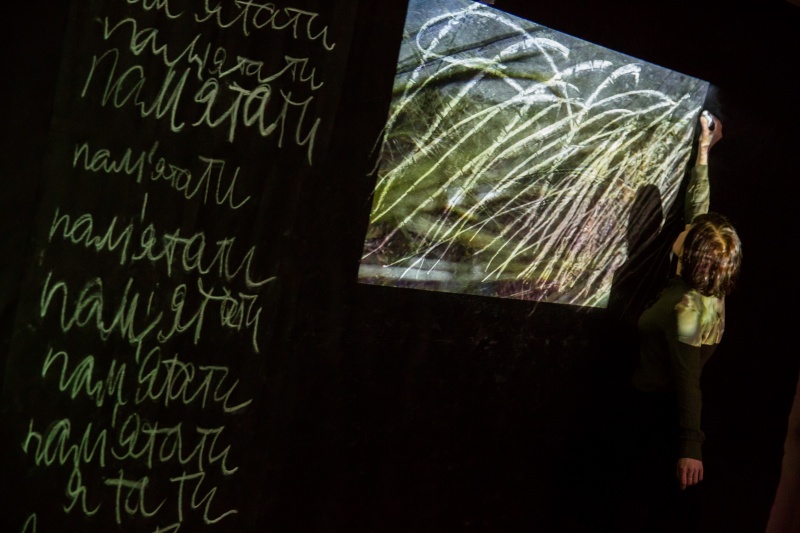 пам'ятати
пам'ятати
пам'ятати
пам'ятати
пам'ятати
пам'ятати
пам'ятати
пам'ятати
ятати